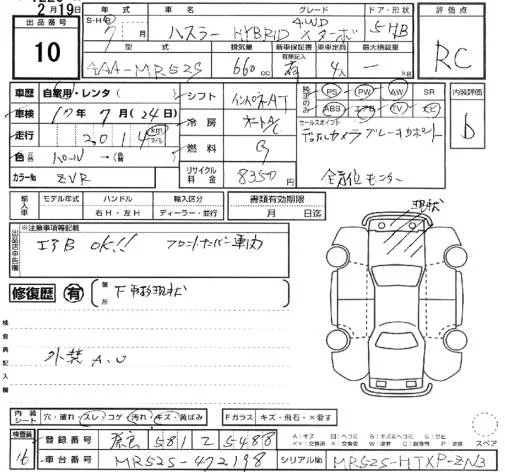 2月19日
出品番号 S・H・B 年式 車名 グレード ドア・形状 評価点
10 7月 ハスラー HYBRID Xターボ 4WD 5HB RC
型式 排気量 新車保証書 乗車定員 最大積載量
有無記入
AAA-MR52S 660cc 有 4人 - kg
車歴 自家用・レンタ( ) シフト インパネAT 純正のみ PS PW AW SR 内装評価
車検 10年7月(24日) 冷房 オートAC ABS エアB TV ナビ D
走行 2,014 km マイル 燃料 G セールスポイント
デュアルカメラブレーキサポート
色 (元色) パール→( ) リサイクル料金 8350円 全方位モニター
カラーNo ZVR
輸入車 モデル年式 ハンドル 輸入区分 書類有効期限
年 右H・左H ディーラー・並行 月 日迄
出品店申告欄 ※注意事項等記載 現状
エアB OK!! フロントナンバー車内
修復歴 有 箇所 F事故現状
検査員記入欄
外装 A、U
内装シート 穴・破れ・スレ・コゲ・汚れ・キズ・黄ばみ Fガラス キズ・飛石・×要す
検査員 16 登録番号 581 5488 スペア
車台番号 MR52S-472198 シリアルNo MR52S-HTXP-ZN3